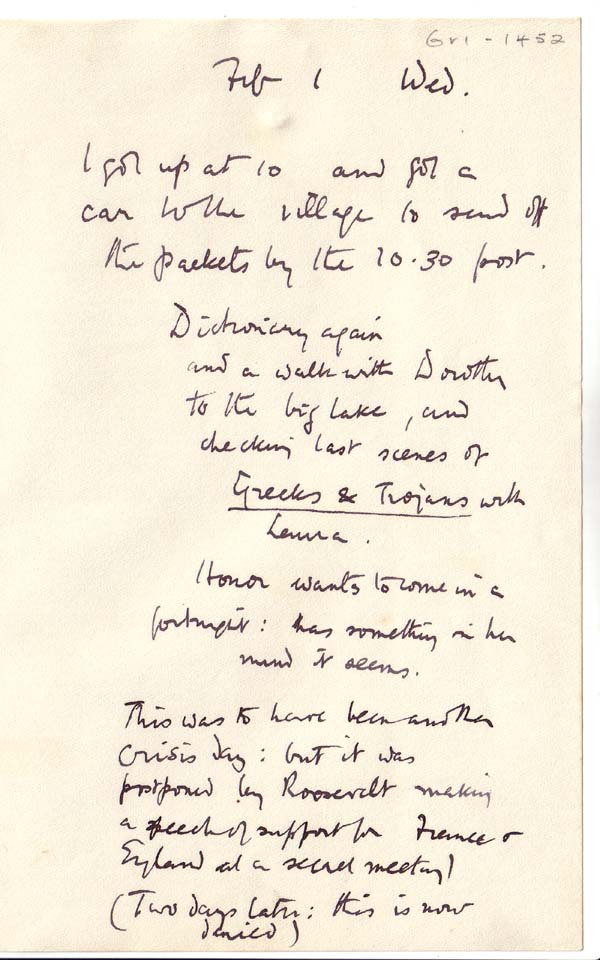 Gr1 - 1452
Feb 1 Wed.
I got up at 10 and got a
car to the village to send off
the packets by the 10.30 post.
Dictionary again
and a walk with Dorothy
to the big lake, and
checking last scenes of
Greeks & Trojans with
Laura.
Honor wants to come in a
fortnight: has something in her
mind it seems.
This was to have been another
crisis day: but it was
postponed by Roosevelt making
a speech of support for France &
England at a secret meeting!
(Two days later: this is now
denied)